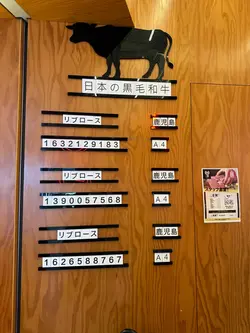 日本の黒毛和牛
リブロース 鹿児島
1632129183 A4
リブロース 鹿児島
1390057568 A4
リブロース 鹿児島
1626588767 A4